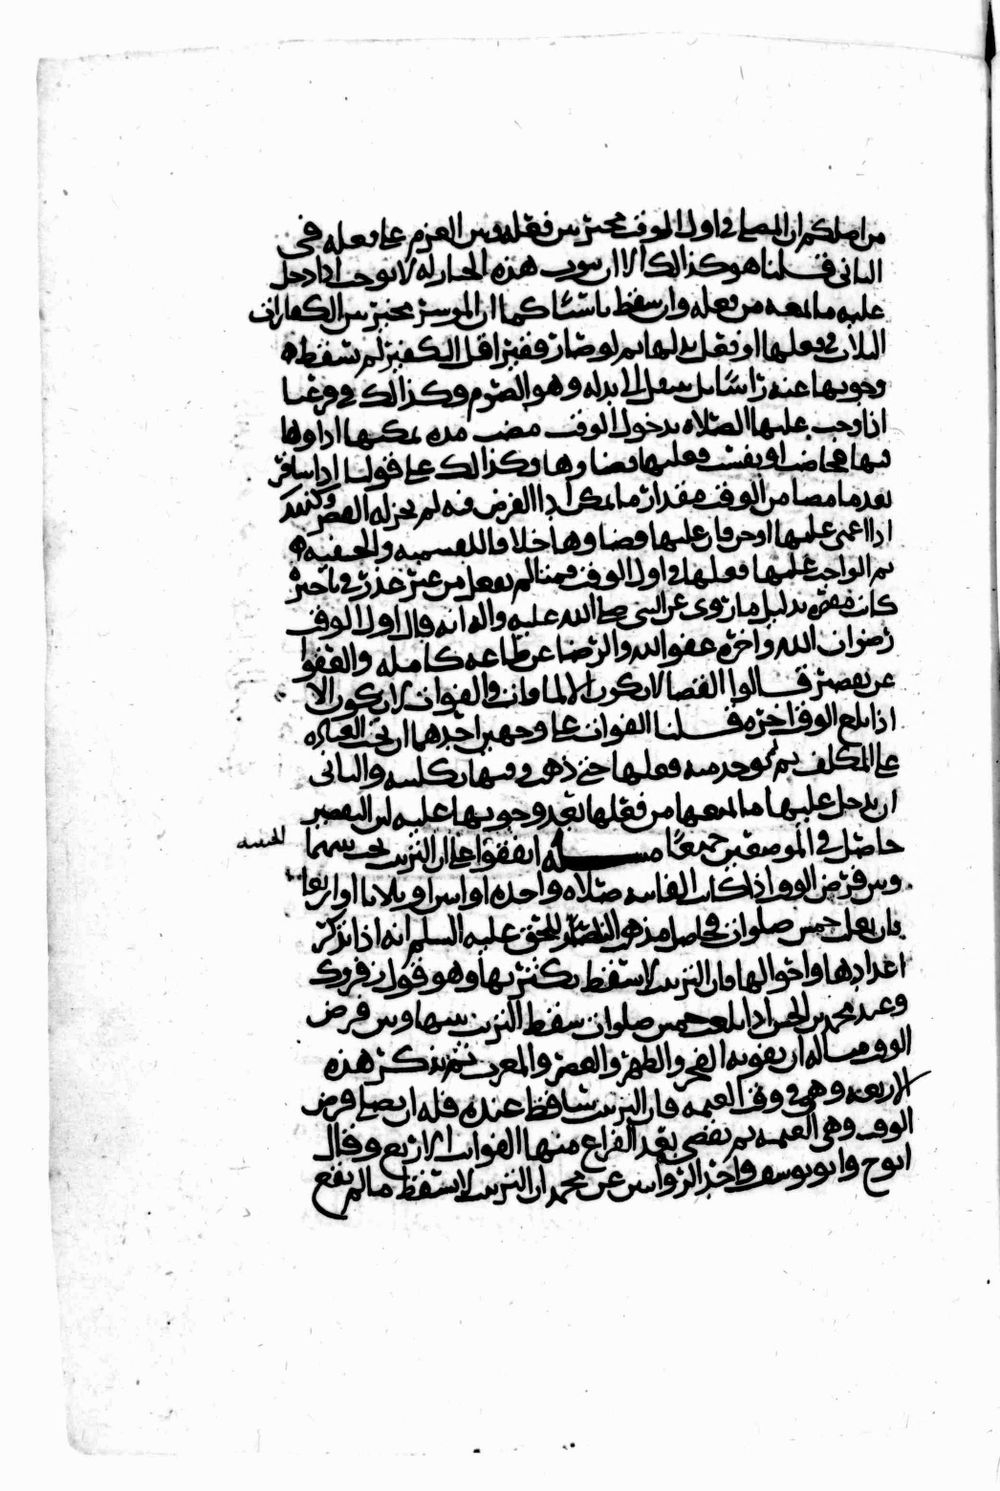 من اصلكم ان المصلي في اول الوقت مخير بين فعله وبين العزم على فعله في
الثاني قلنا هو كذالك الا ان ثبوت هذه الخيار له لا يوجب اذا دخل
عليه ما لمنعه من فعله وان يسقط باشيا كما ان الموسر مخير بين الكفارات
الثلاث في فعلها او فعل بدلها ثم لو صار فقيرا قبل التكفير لم تسقط
وجوبها عنه راسا بل ينتقل الى بدله وهو الصوم وكذالك في فرعنا
اذا وجب عليها الصلاة بدخول الوقت ومضت مدة يمكنها اداوها
فيها فحاضت او نفست فعليها قضاوها وكذالك على قولنا اذا سافر
بعد ما مضا من الوقت مقدار ما يمكن ادا الفرض فيه لم يجز له القصر وكذلك
اذا اغمي عليها او جن فان عليها قضاوها خلافا للقسمية والحنفية
ثم الواجب عليها فعلها في اول الوقت فمتا لم يفعل من غير عذر في تاخير
كانت مقصرة بدليل ما روى عن النبي صلى الله عليه واله انه قال اول الوقت
رضوان الله واخره عفو الله والرضا عن طاعة كاملة والعفو
عن تقصير قالوا القضا لا يكون الا لما فات والفوات لا يكون الا
اذا بلغ الوقت اخره قلنا الفوات على وجهين احدهما ان تجب العبادة
على المكلف ثم لم يوجد منه فعلها حتى ذهب وقتها بكليته والثاني
ان يدخل عليها ما يمنعها من فعلها بعد وجوبها عليه لان التقصير
حاصل في الموضعين جميعا مسئلة اتفقوا على ان الترتيب يجب بينهما
وبين فرض الوقت اذا كانت الفائتة صلاة واحدة او اثنين او ثلاثا او اربعا
فان بلغت خمس صلوات فحاصل مذهب الناصر للحق عليه السلم انه اذا تذكر
اعدادها واحوالها فان الترتيب لا يسقط بكثرتها وهو قول زفر
وعند محمد بن الحسن اذا بلغت خمس صلوات سقط الترتيب بينها وبين فرض
الوقت مثاله ان يفوته الفجر والظهر والعصر والمغرب ثم يتذكر هذه
الاربعة وهي في وقت العتمة فان الترتيب ساقط عنده فله ان يصلي فرض
الوقت وهي العتمة ثم يقضي بعد الفراغ منها الفوائت الاربع وقال
ابو ح وابو يوسف واحد الروايتين عن محمد ان الترتيب لا يسقط ما لم يقع